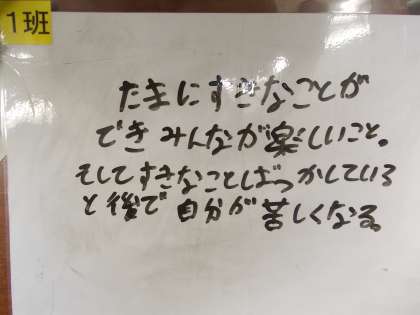 1班
たまにすきなことが
できみんなが楽しいこと。
そしてすきなことばっかしている
と後で自分が苦しくなる。